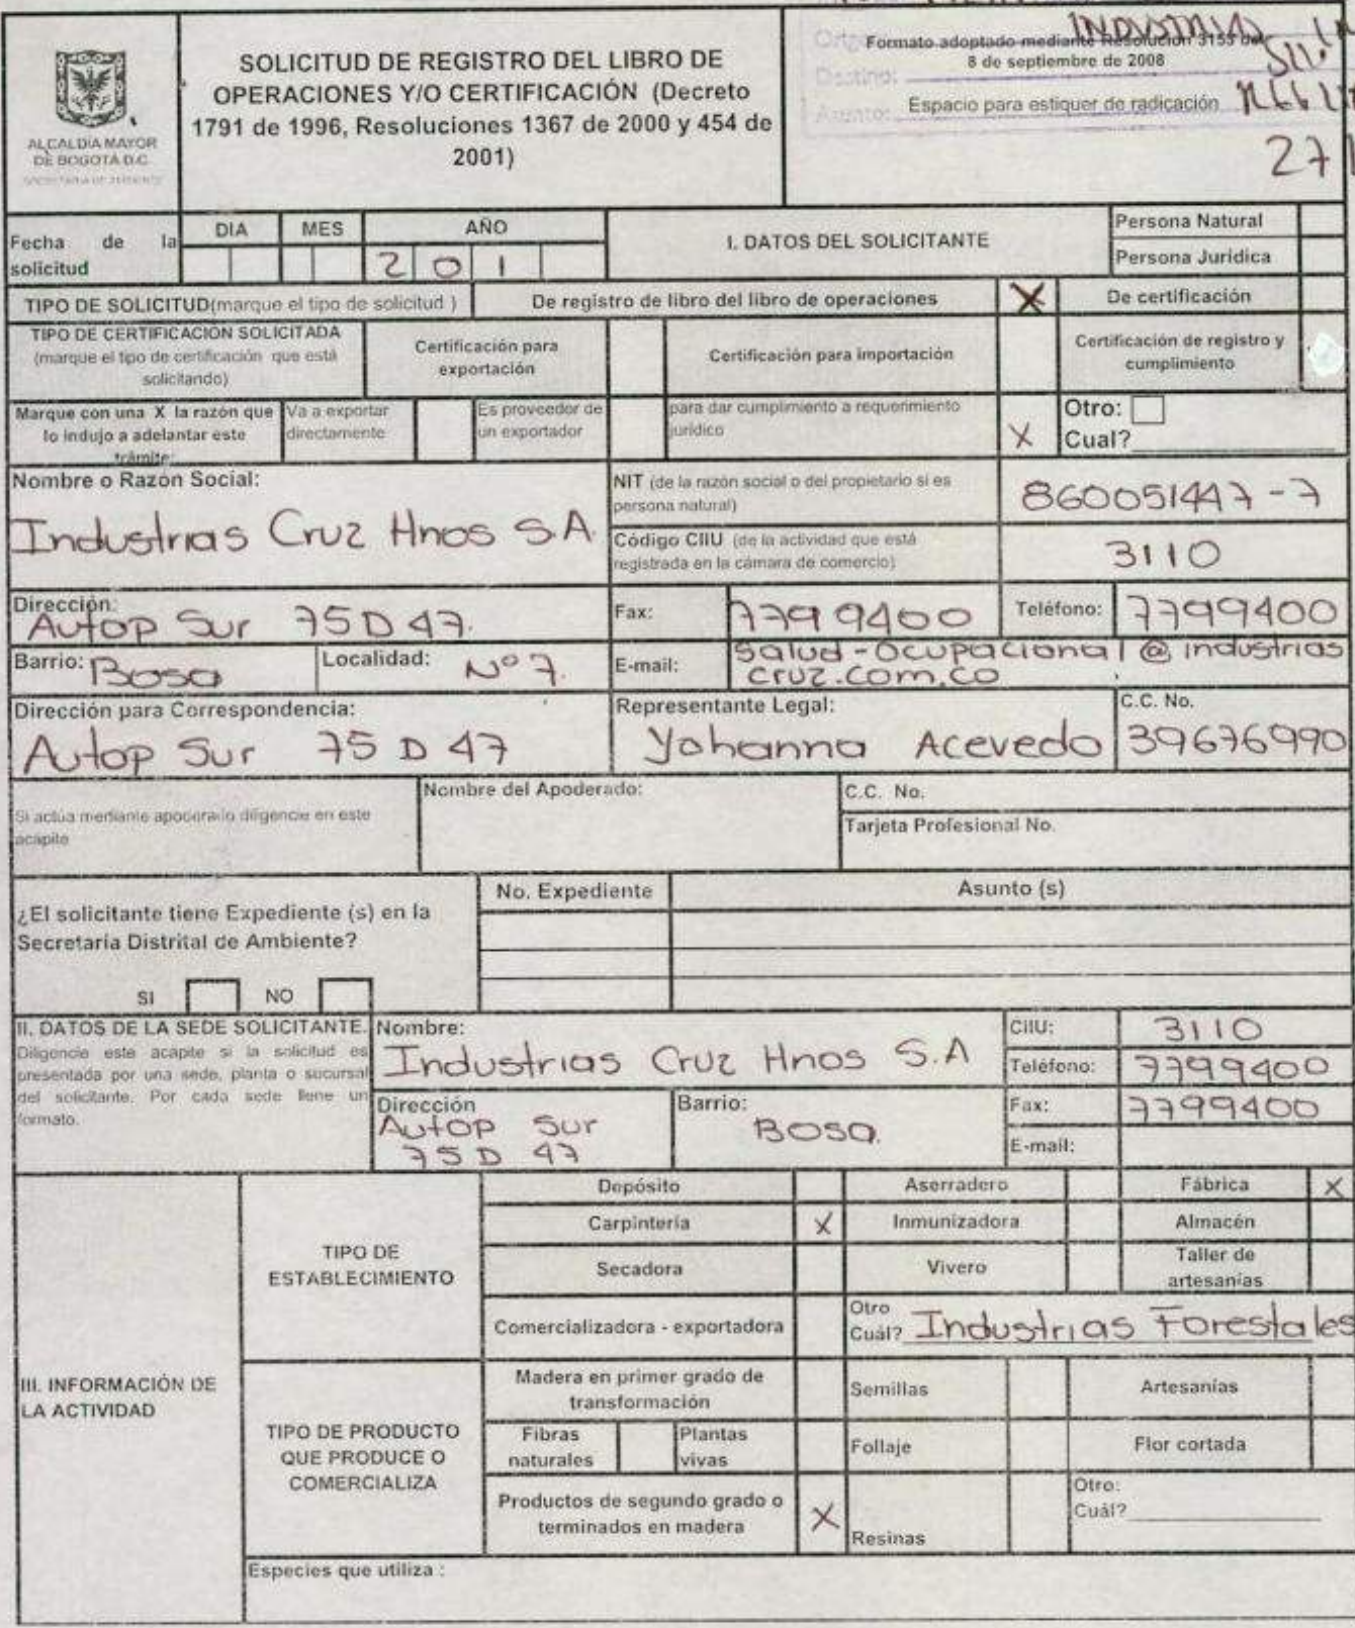 ALCALDIA MAYOR
DE BOGOTÁ D.C.
SOLICITUD DE REGISTRO DEL LIBRO DE
OPERACIONES Y/O CERTIFICACIÓN (Decreto
1791 de 1996, Resoluciones 1367 de 2000 y 454 de
2001)
INDUSTRIAS
Formato adoptado mediante Resolución 3153 de
8 de septiembre de 2008
Destino:
Asunto:
Espacio para estiquer de radicación
27
Fecha de la
solicitud
DIA MES AÑO
2 0 1
I. DATOS DEL SOLICITANTE
Persona Natural
Persona Juridica
TIPO DE SOLICITUD(marque el tipo de solicitud )
De registro de libro del libro de operaciones X
De certificación
TIPO DE CERTIFICACIÓN SOLICITADA
(marque el tipo de certificación que está
solicitando)
Certificación para
exportación
Certificación para importación
Certificación de registro y
cumplimiento
Marque con una X la razón que
lo indujo a adelantar este
trámite:
Va a exportar
directamente
Es proveedor de
un exportador
para dar cumplimiento a requerimiento
jurídico X
Otro:
Cual?
Nombre o Razón Social:
Industrias Cruz Hnos S.A.
NIT (de la razón social o del propietario si es
persona natural)
860051447-7
Código CIIU (de la actividad que está
registrada en la cámara de comercio)
3110
Dirección:
Autop Sur 75D47.
Fax: 7799400
Teléfono: 7799400
Barrio: Bosa
Localidad: Nº 7.
E-mail: Salud-Ocupacional@industrias
cruz.com.co
Dirección para Correspondencia:
Autop Sur 75 D 47
Representante Legal:
Yohanna Acevedo
C.C. No.
39676990
Si actúa mediante apoderado diligencie en este
acápite
Nombre del Apoderado:
C.C. No.
Tarjeta Profesional No.
¿El solicitante tiene Expediente (s) en la
Secretaría Distrital de Ambiente?
SI NO
No. Expediente
Asunto (s)
II. DATOS DE LA SEDE SOLICITANTE.
Diligencie este acapite si la solicitud es
presentada por una sede, planta o sucursal
del solicitante. Por cada sede llene un
formato.
Nombre:
Industrias Cruz Hnos S.A
CIIU: 3110
Teléfono: 7799400
Dirección
Autop Sur
75D 47
Barrio:
Bosa.
Fax: 7799400
E-mail:
III. INFORMACIÓN DE
LA ACTIVIDAD
TIPO DE
ESTABLECIMIENTO
Depósito Aserradero Fábrica X
Carpintería X Inmunizadora Almacén
Secadora Vivero Taller de
artesanías
Comercializadora - exportadora
Otro
Cuál? Industrias Forestales
TIPO DE PRODUCTO
QUE PRODUCE O
COMERCIALIZA
Madera en primer grado de
transformación
Semillas Artesanías
Fibras
naturales
Plantas
vivas
Follaje Flor cortada
Productos de segundo grado o
terminados en madera X
Resinas
Otro:
Cuál?
Especies que utiliza :